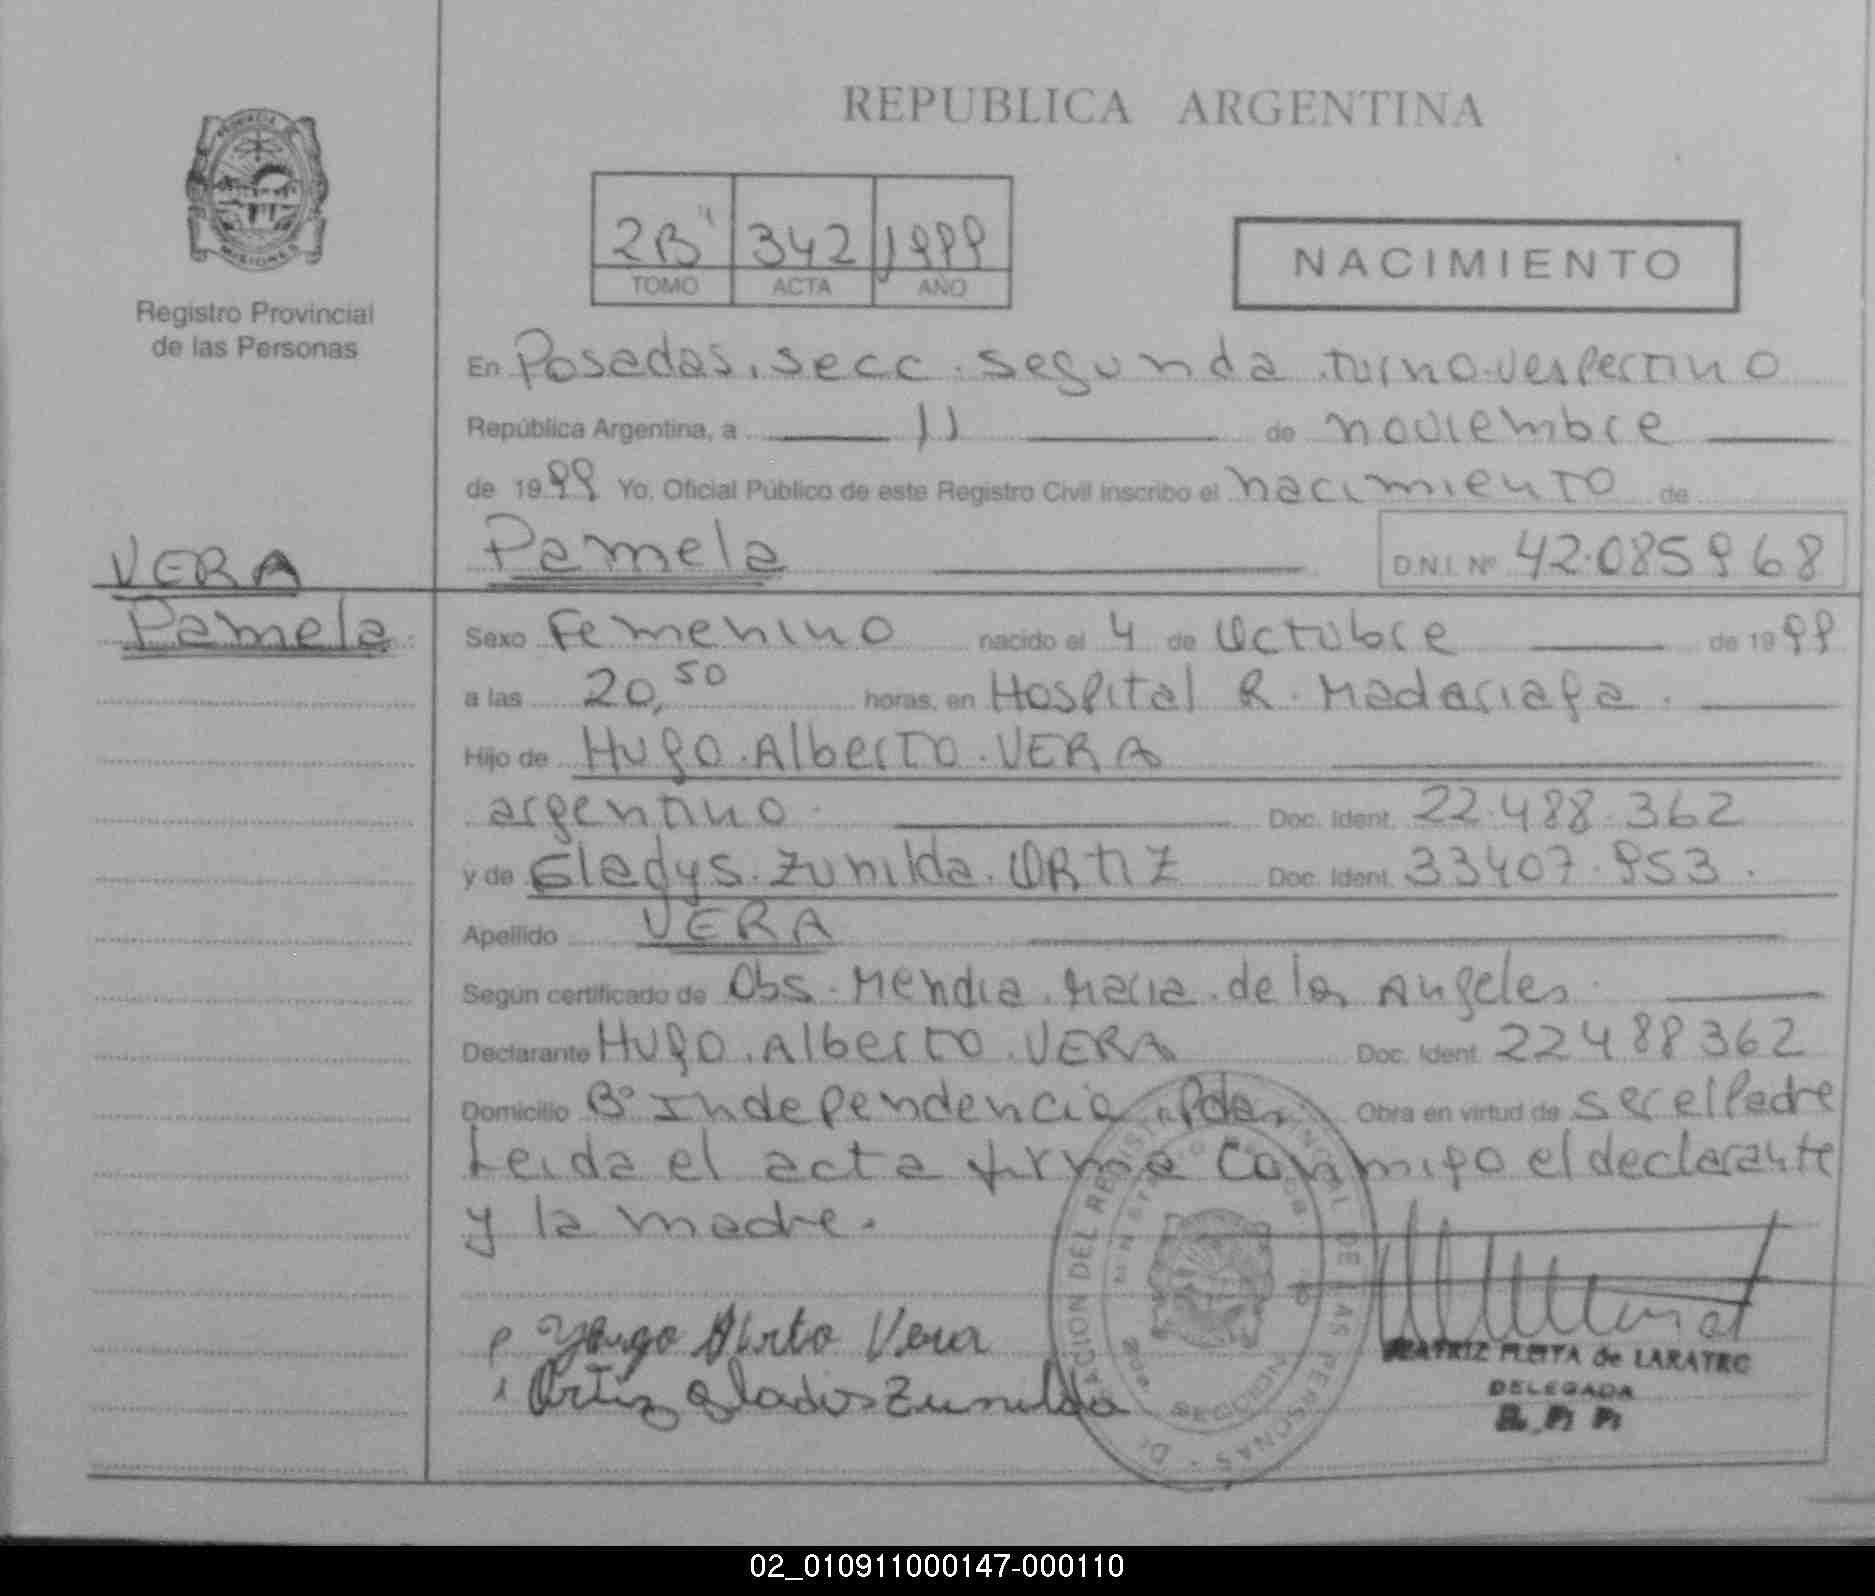 REPUBLICA ARGENTINA
PROVINCIA DE
MISIONES
Registro Provincial
de las Personas
2B" 342 1999
TOMO ACTA AÑO
NACIMIENTO
En Posadas, secc. segunda turno vespertino
República Argentina, a 11 de noviembre
de 1999 Yo, Oficial Público de este Registro Civil inscribo el nacimiento de
Pamela D.N.I. Nº 42.085968
VERA
Pamela
Sexo Femenino nacido el 4 de Octubre de 1999
a las 20,50 horas, en Hospital R. Madariaga.
Hijo de Hugo Alberto VERA
argentino Doc. Ident. 22.488.362
y de Gladys Zunilda ORTIZ Doc. Ident. 33407.953.
Apellido VERA
Según certificado de Obs. Mendia Maria de los Angeles
Declarante Hugo Alberto VERA Doc. Ident. 22488362
Domicilio Bº Independencia, Pdas. Obra en virtud de ser el Padre
Leida el acta firma conmigo el declarante
y la madre.
Vera
Ortiz Gladis Zunilda
BEATRIZ de
DELEGADA
DEL REGISTRO PROVINCIAL DE LAS PERSONAS